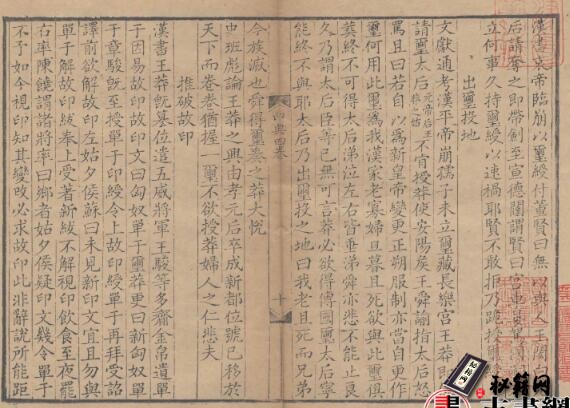 漢哀帝臨崩以璽綬付董賢曰無以與人王閎白
后請奪之即帶劍至宣德闥謂賢曰宫車晏駕
立何事久持璽綬以速禍耶賢不敢拒乃跪授璽
出璽投地
文獻通考漢平帝崩孺子未立璽藏長樂宫王莽即
請璽太后不肯授莽使安陽矦王舜諭指太后怒
罵且曰若自以為新皇帝變更正朔服制亦當自更作
璽何用此璽為我漢家老寡婦旦暮且死欲與此璽俱
𦵏終不可得太后涕泣左右皆垂涕舜亦悲不能止良
久乃謂太后臣等已無可言莽必欲得傳國璽太后寧
能終不與耶太后乃出璽投之地曰我老且死而兄弟
印典四卷
十
今族滅也舜得璽奏之莽大悅
史班彪論王莽之興由孝元后卒成新都位號已移於
天下而卷卷猶握一璽不欲授莽婦人之仁悲夫
推破故印
漢書王莽既篡位遣五威將軍王駿等多齎金帛遺單
于因易故印故印文曰匈奴單于璽莽更曰新匈奴單
于章駿既至授單于印綬令上故印綬單于再拜受詔
譯前欲解故印左姑夕侯蘇曰未見新印文宜且勿與
單于解故印紱奉上受著新紱不解視印飲食至夜罷
右率陳饒謂諸將率曰鄉者姑夕侯疑印文幾令單于
不予如今視印知其變改必求故印此非辭說所能距
秘籍网